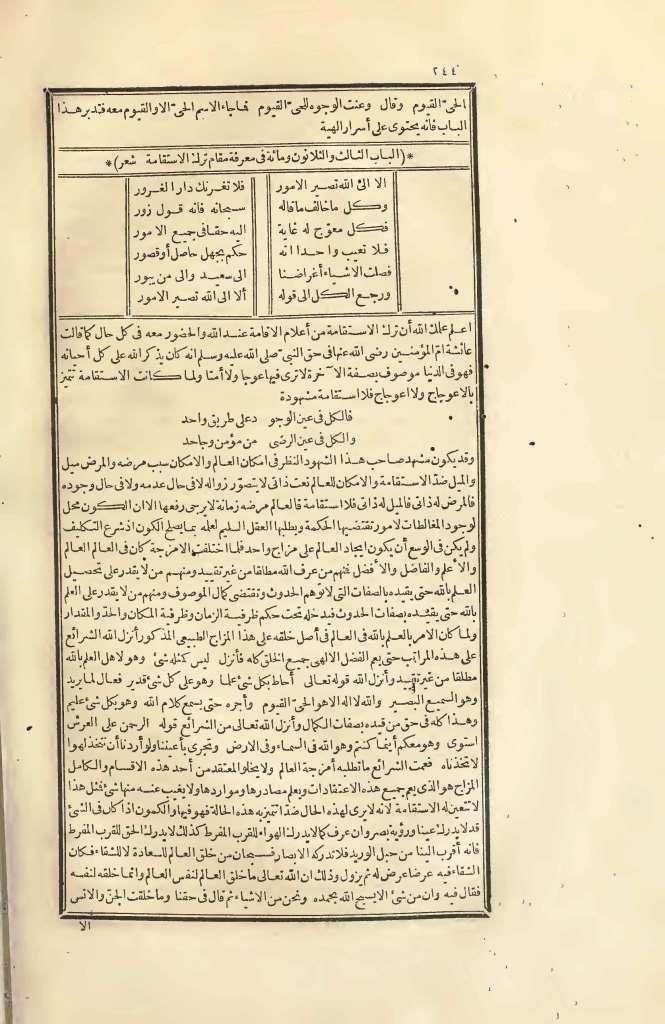 ٢٤٤
الحىّ القيوم وقال وعنت الوجوه للحىّ القيوم فما جاء الاسم الحىّ الا والقيوم معه فتدبر هذا
الباب فانه يحتوى على أسرار الهية
*(الباب الثالث والثلاثون ومائة فى معرفة مقام ترك الاستقامة شعر)*
الا الى الله تصير الامور فلا تغرنك دار الغرور
وكل ما خالف ما قاله سبحانه فانه قول زور
فكل معوّج له غاية اليه حقا فى جميع الامور
فلا تعيب واحدا انه حكم بجهل حاصل أو قصور
فصلت الاشياء أغراضنا الى سعيد والى من يبور
ورجع الكل الى قوله ألا الى الله تصير الامور
اعلم علمك الله أن ترك الاستقامة من أعلام الاقامة عند الله والحضور معه فى كل حال كما قالت
عائشة أمّ المؤمنين رضى الله عنها فى حق النبىّ صلى الله عليه وسلم انه كان يذكر الله على كل أحيانه
فهو فى الدنيا موصوف بصفة الآخرة لا ترى فيها عوجا ولا أمتا ولما كانت الاستقامة تتميز
بالاعوجاج ولا اعوجاج فلا استقامة مشهودة
فالكل فى عين الوجو دعلى طريق واحد
والكل فى عين الرضى من مؤمن وجاحد
وقد يكون مشهد صاحب هذا الشهود النظر فى امكان العالم والامكان سبب مرضه والمرض ميل
والميل ضدّ الاستقامة والامكان للعالم نعت ذاتى لا يتصوّر زواله لا فى حال عدمه ولا فى حال وجوده
فالمرض له ذاتى فالميل له ذاتى فلا استقامة فالعالم مرضه زمانة لا يرجى رفعها الا ان الكون محل
لوجود المغالطات لامور تقتضيها الحكمة ويطلبها العقل السليم لعلمه بما يصلح الكون اذ شرع التكليف
ولم يكن فى الوسع أن يكون ايجاد العالم على مزاج واحد فلما اختلفت الامزجة كان فى العالم العالم
والأعلم والفاضل والأفضل فمنهم من عرف الله مطلقا من غير تقييد ومنهم من لا يقدر على تحصيل
العلم بالله حتى يقيده بالصفات التى لا توهم الحدوث وتقتضى كمال الموصوف ومنهم من لا يقدر على العلم
بالله حتى يقيده بصفات الحدوث فيدخله تحت حكم ظرفية الزمان وظرفية المكان والحدّ والمقدار
ولما كان الامر بالعلم بالله فى العالم فى أصل خلقه على هذا المزاج الطبيعى المذكور أنزل الله الشرائع
على هذه المراتب حتى يعم الفضل الالهى جميع الخلق كله فأنزل ليس كمثله شئ وهو لاهل العلم بالله
مطلقا من غير تقييد وأنزل الله قوله تعالى أحاط بكل شئ علما وهو على كل شئ قدير فعال لما يريد
وهو السميع البصير والله لا اله الا هو الحىّ القيوم وأجره حتى يسمع كلام الله وهو بكل شئ عليم
وهذا كله فى حق من قيده بصفات الكمال وأنزل الله تعالى من الشرائع قوله الرحمن على العرش
استوى وهو معكم أينما كنتم وهو الله فى السماء وفى الارض وتجرى بأعيننا ولو أردنا أن نتخذ لهوا
لاتخذناه فعمت الشرائع ما تطلبه أمزجة العالم ولا يخلو المعتقد من أحد هذه الاقسام والكامل
المزاج هو الذى يعم جميع هذه الاعتقادات ويعلم مصادرها ومواردها ولا يغيب عنه منها شئ فمثل هذا
لا تتعين له الاستقامة لانه لا يرى لهذه الحال ضدّا تتميز به هذه الحالة فهو فيها والكمون اذا كان فى الشئ
قد لا يدركه عينا ورؤية بصر وان عرف كما لا يدرك الهواء للقرب المفرط كذلك لا يدرك الحق للقرب المفرط
فانه أقرب الينا من حبل الوريد فلا تدركه الابصار فسبحان من خلق العالم للسعادة لا للشقاء فكان
الشقاء فيه عرضا عرض له ثم يزول وذلك ان الله تعالى ما خلق العالم لنفس العالم وانما خلقه لنفسه
فقال فيه وان من شئ الا يسبح الله بحمده ونحن من الاشياء ثم قال فى حقنا وما خلقت الجنّ والانس
الا